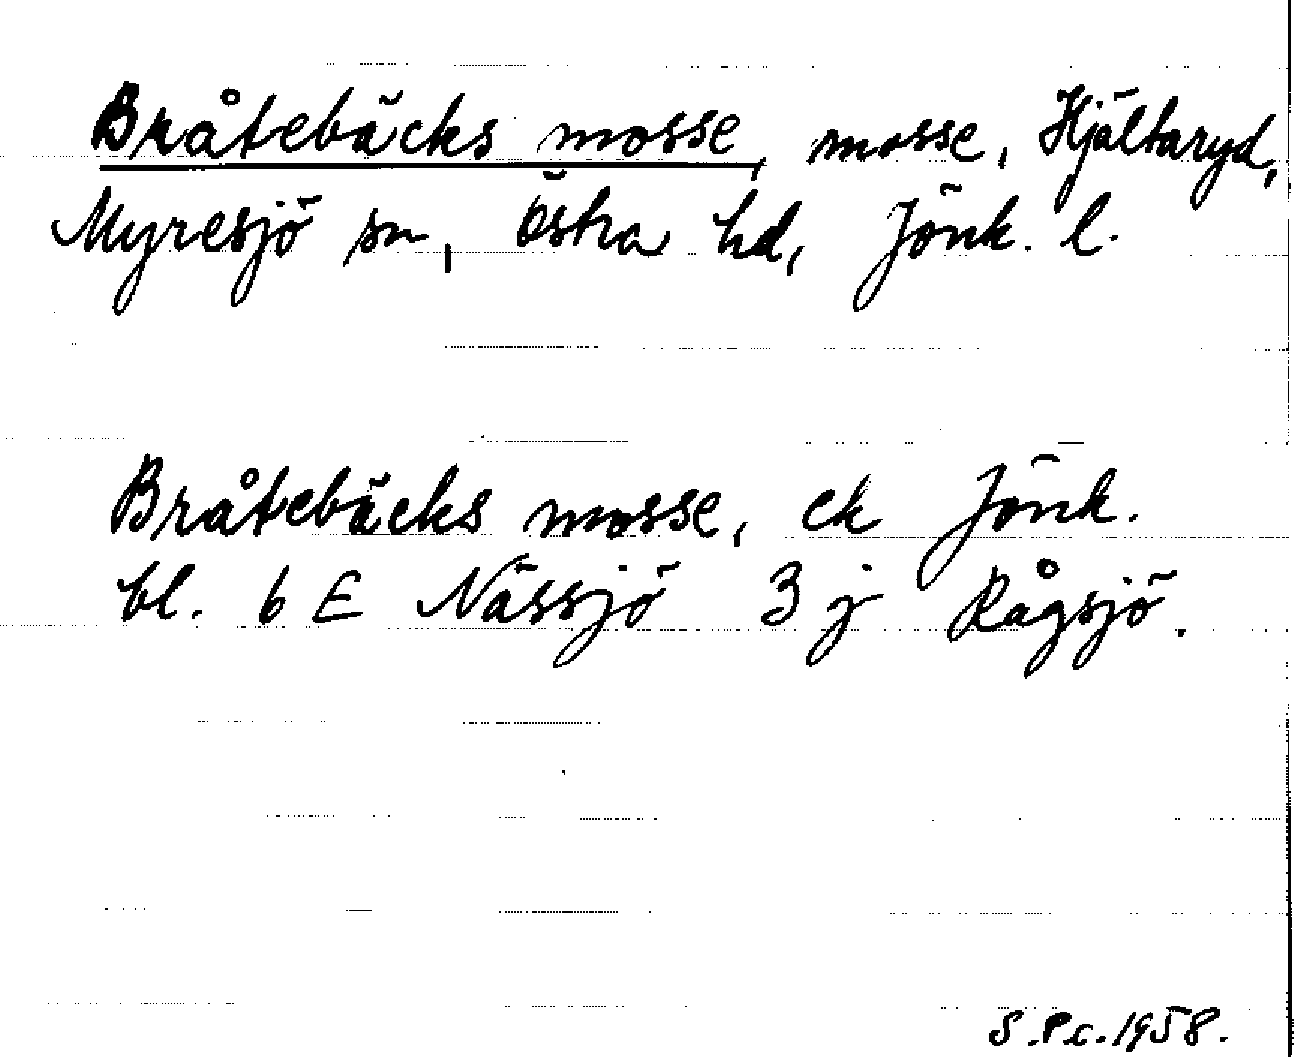 Bråtebäcks mosse, mosse, Hjältaryd,
Myresjö sn, Östra hd, Jönk. l.
Bråtebäcks mosse, ek Jönk.
bl. 6 E Nässjö 3 j Rågsjö.
S.P.c. 1958.